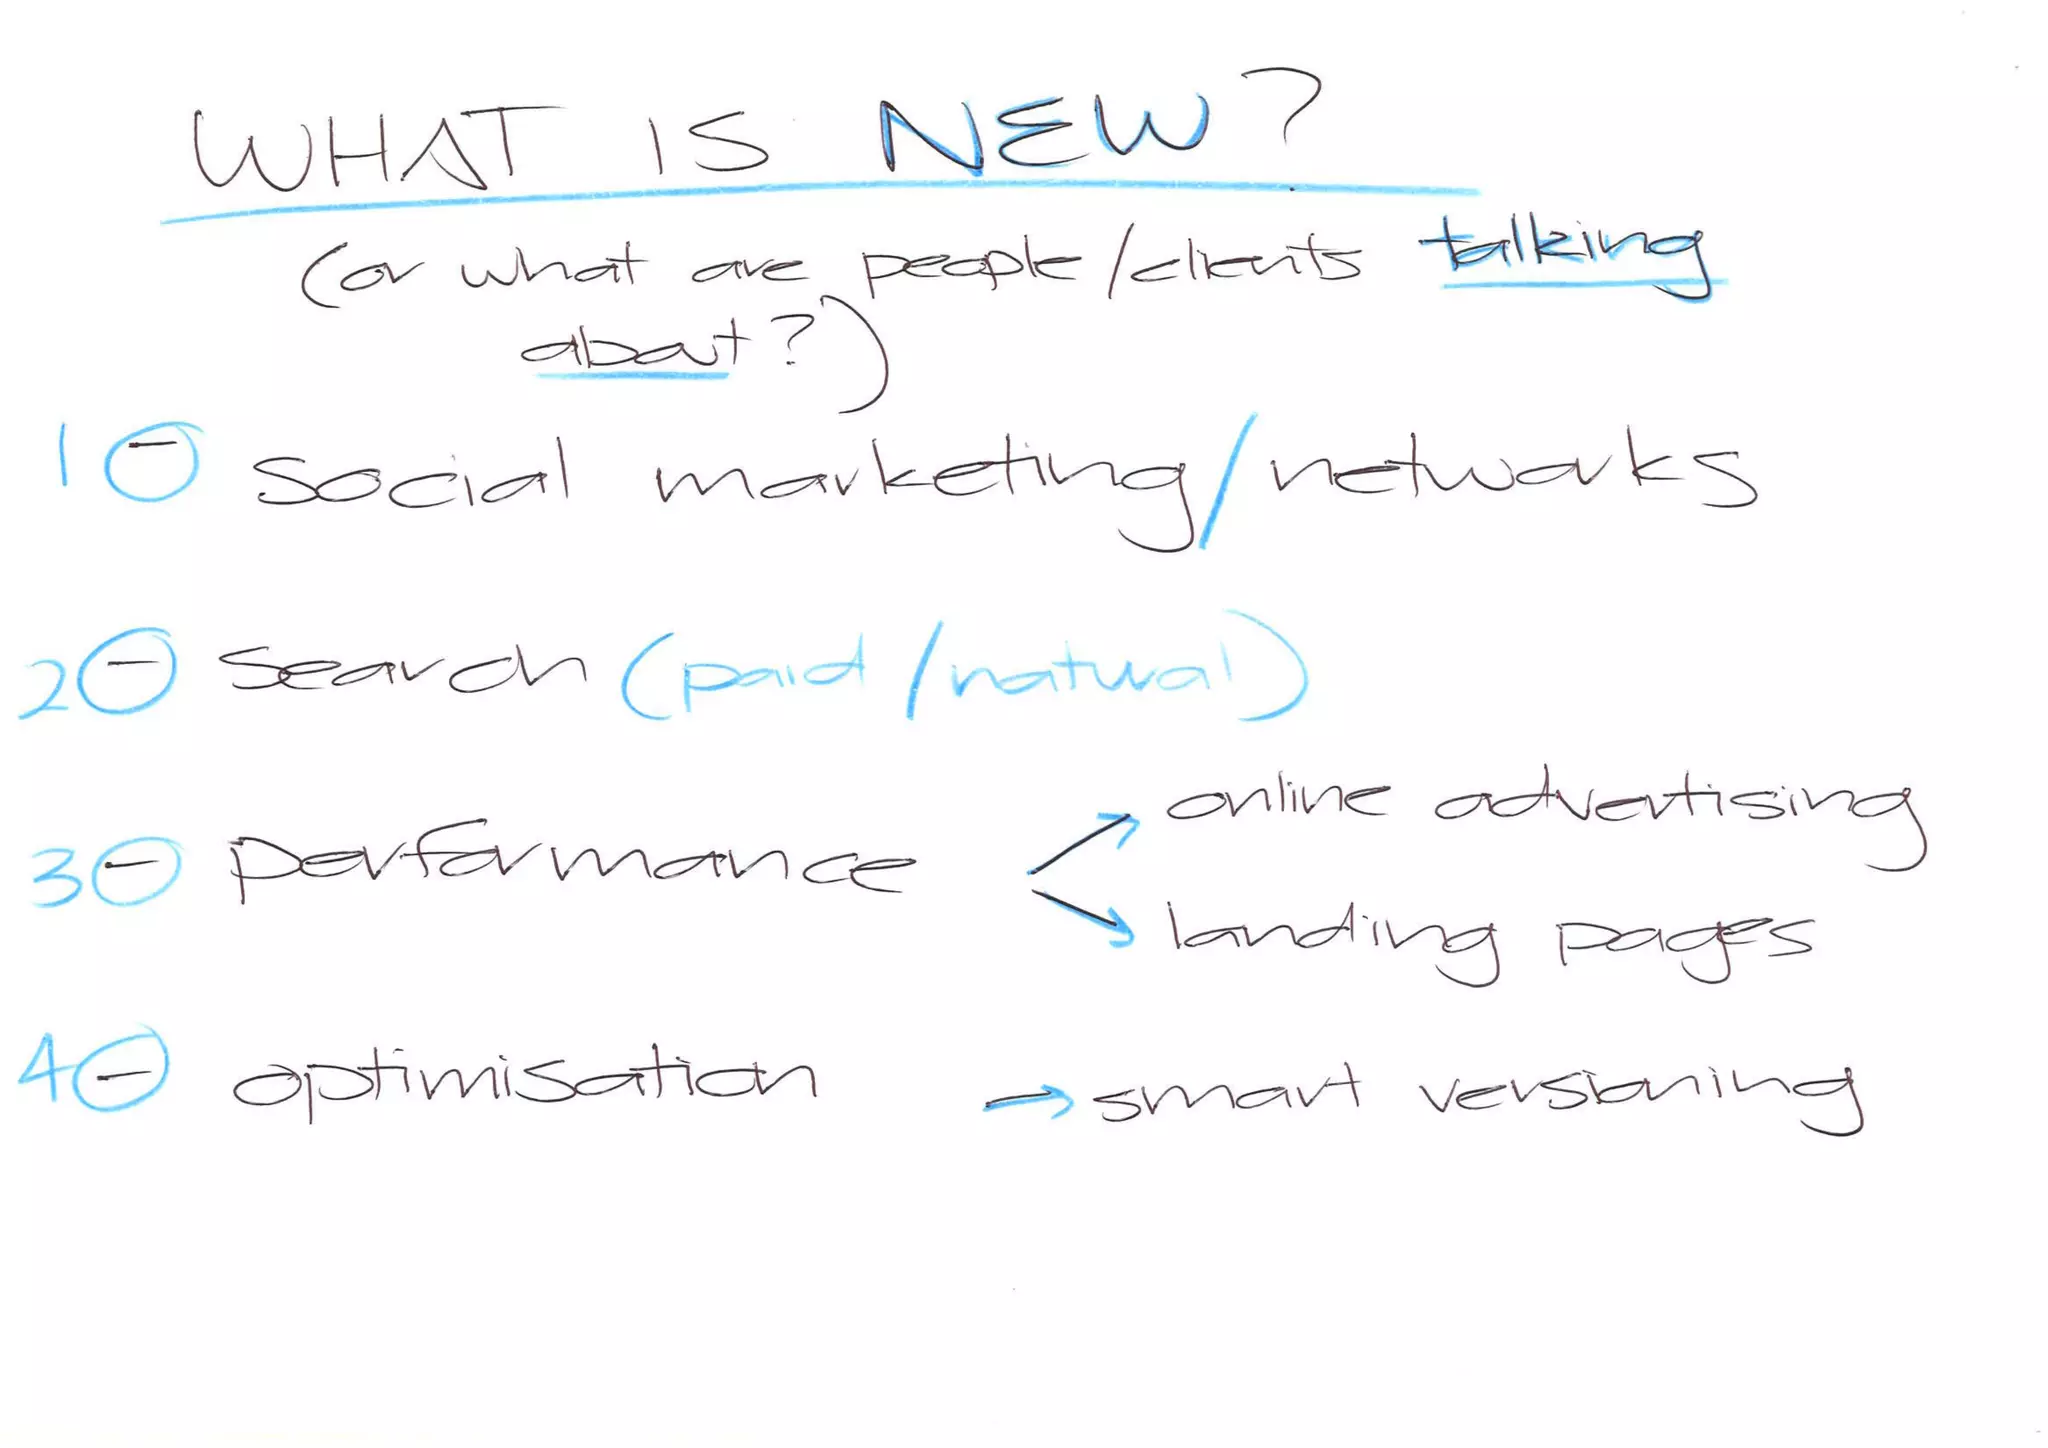 WHAT IS NEW?
(or what are people/clients talking
about?)
1 - social marketing/networks
2 - search (paid/natural)
3 - performance
online advertising
landing pages
4 - optimisation → smart versioning